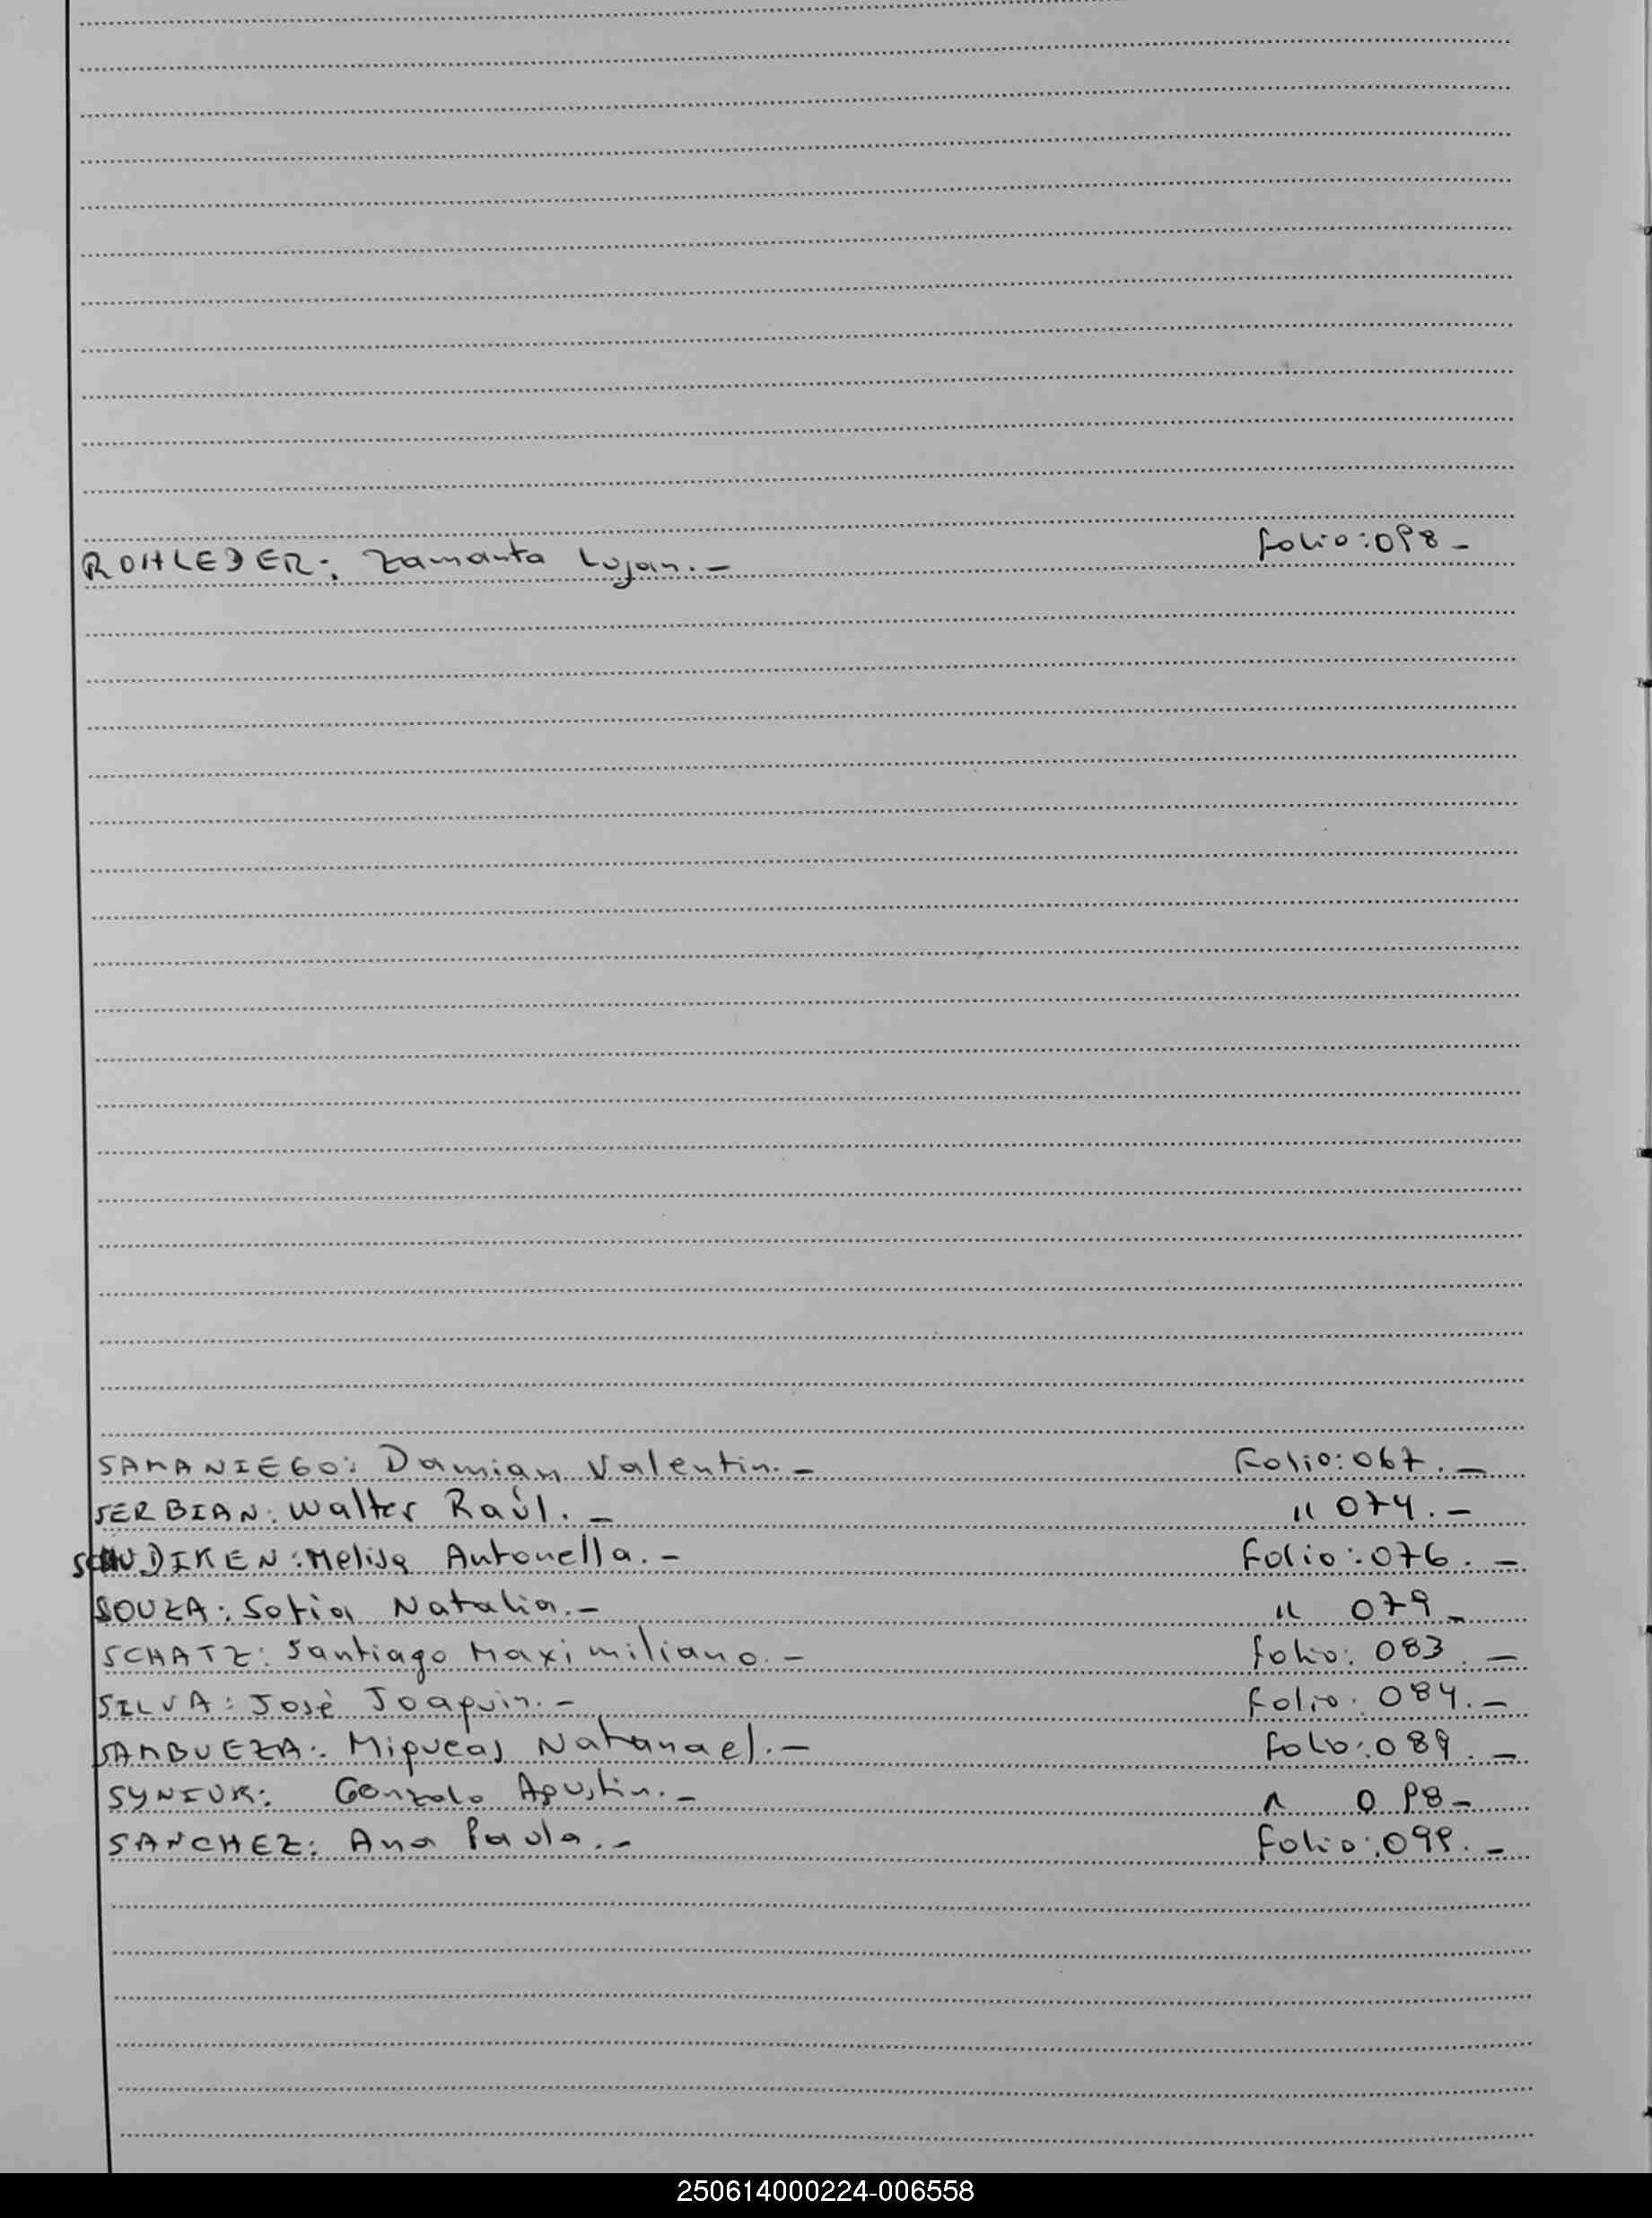 ROHLEDER: Zamanta Lujan.- folio:098-
SAMANIEGO: Damian Valentin.- Folio:067.-
SERBIAN: Walter Raúl.- " 074.-
Melisa Antonella.- Folio:076.-
SOUZA: Sofia Natalia.- " 079-
SCHATZ: Santiago Maximiliano.- folio: 083.-
SILVA: José Joaquin.- Folio: 084.-
SAMBUEZA: Miqueas Natanael.- Folio:089.-
Gonzalo Agustin.- " 098-
SANCHEZ: Ana Paula.- Folio:099.-
250614000224-006558